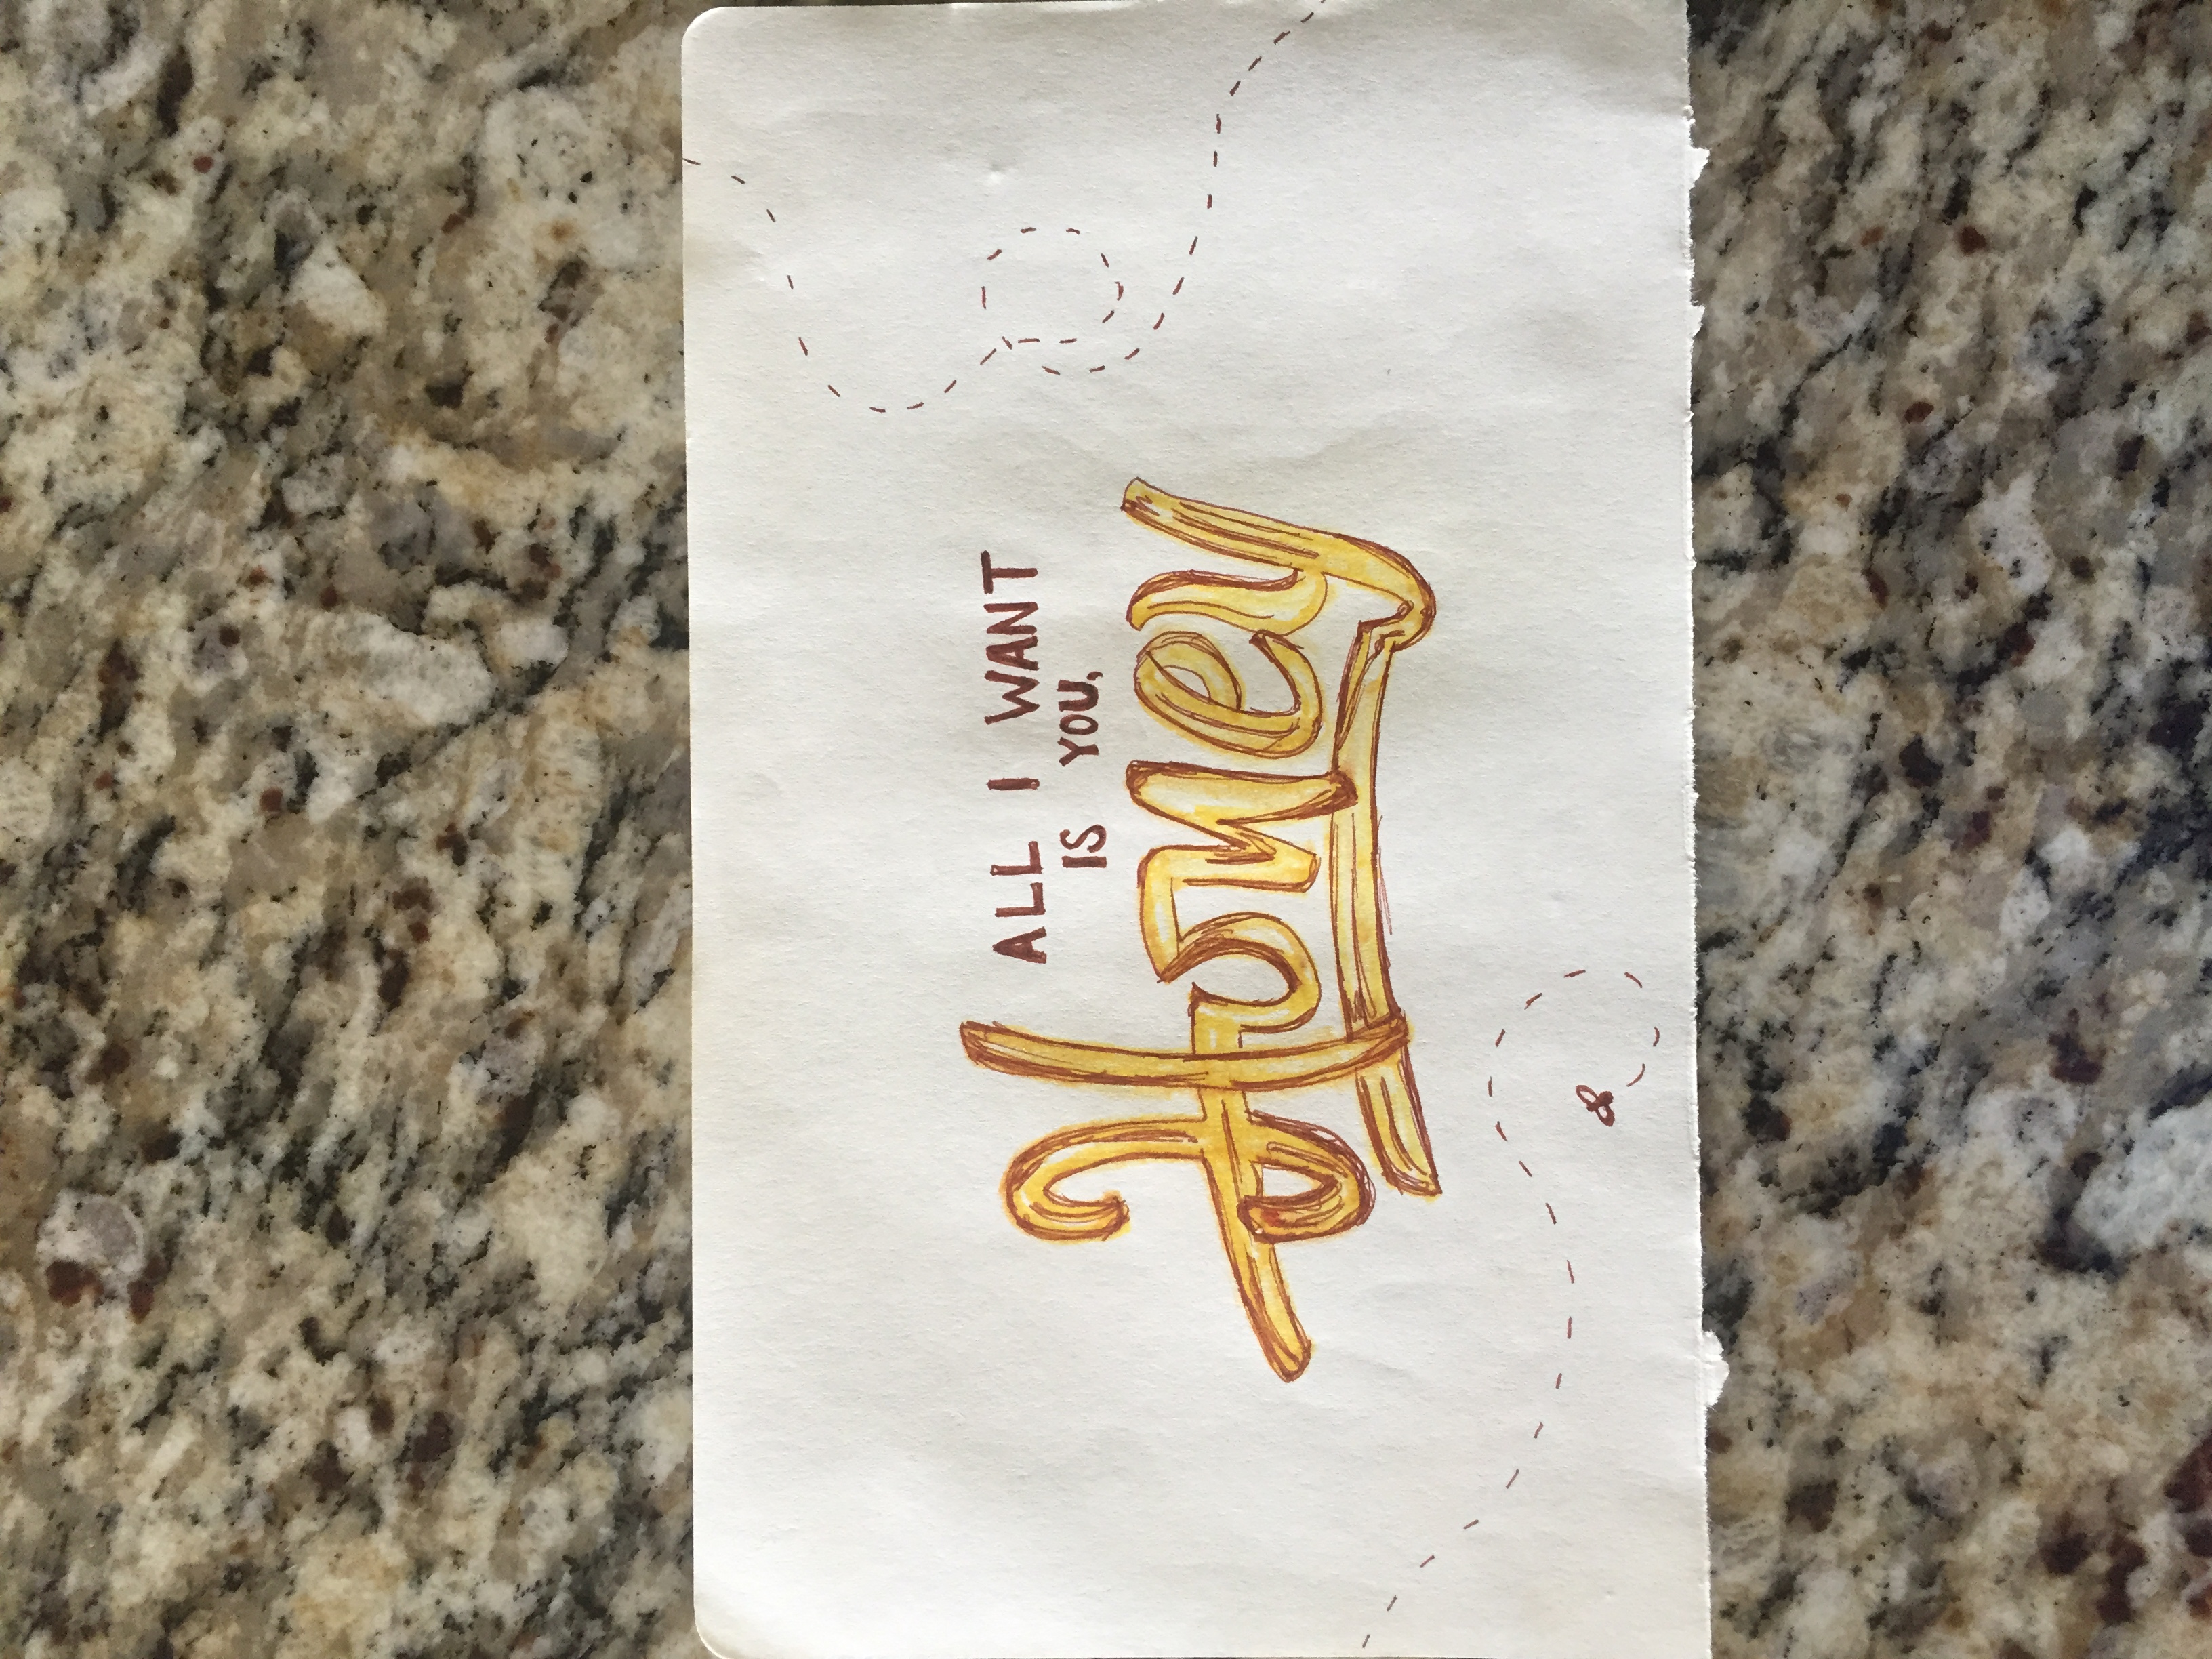 ALL I WANT
IS YOU,
Honey